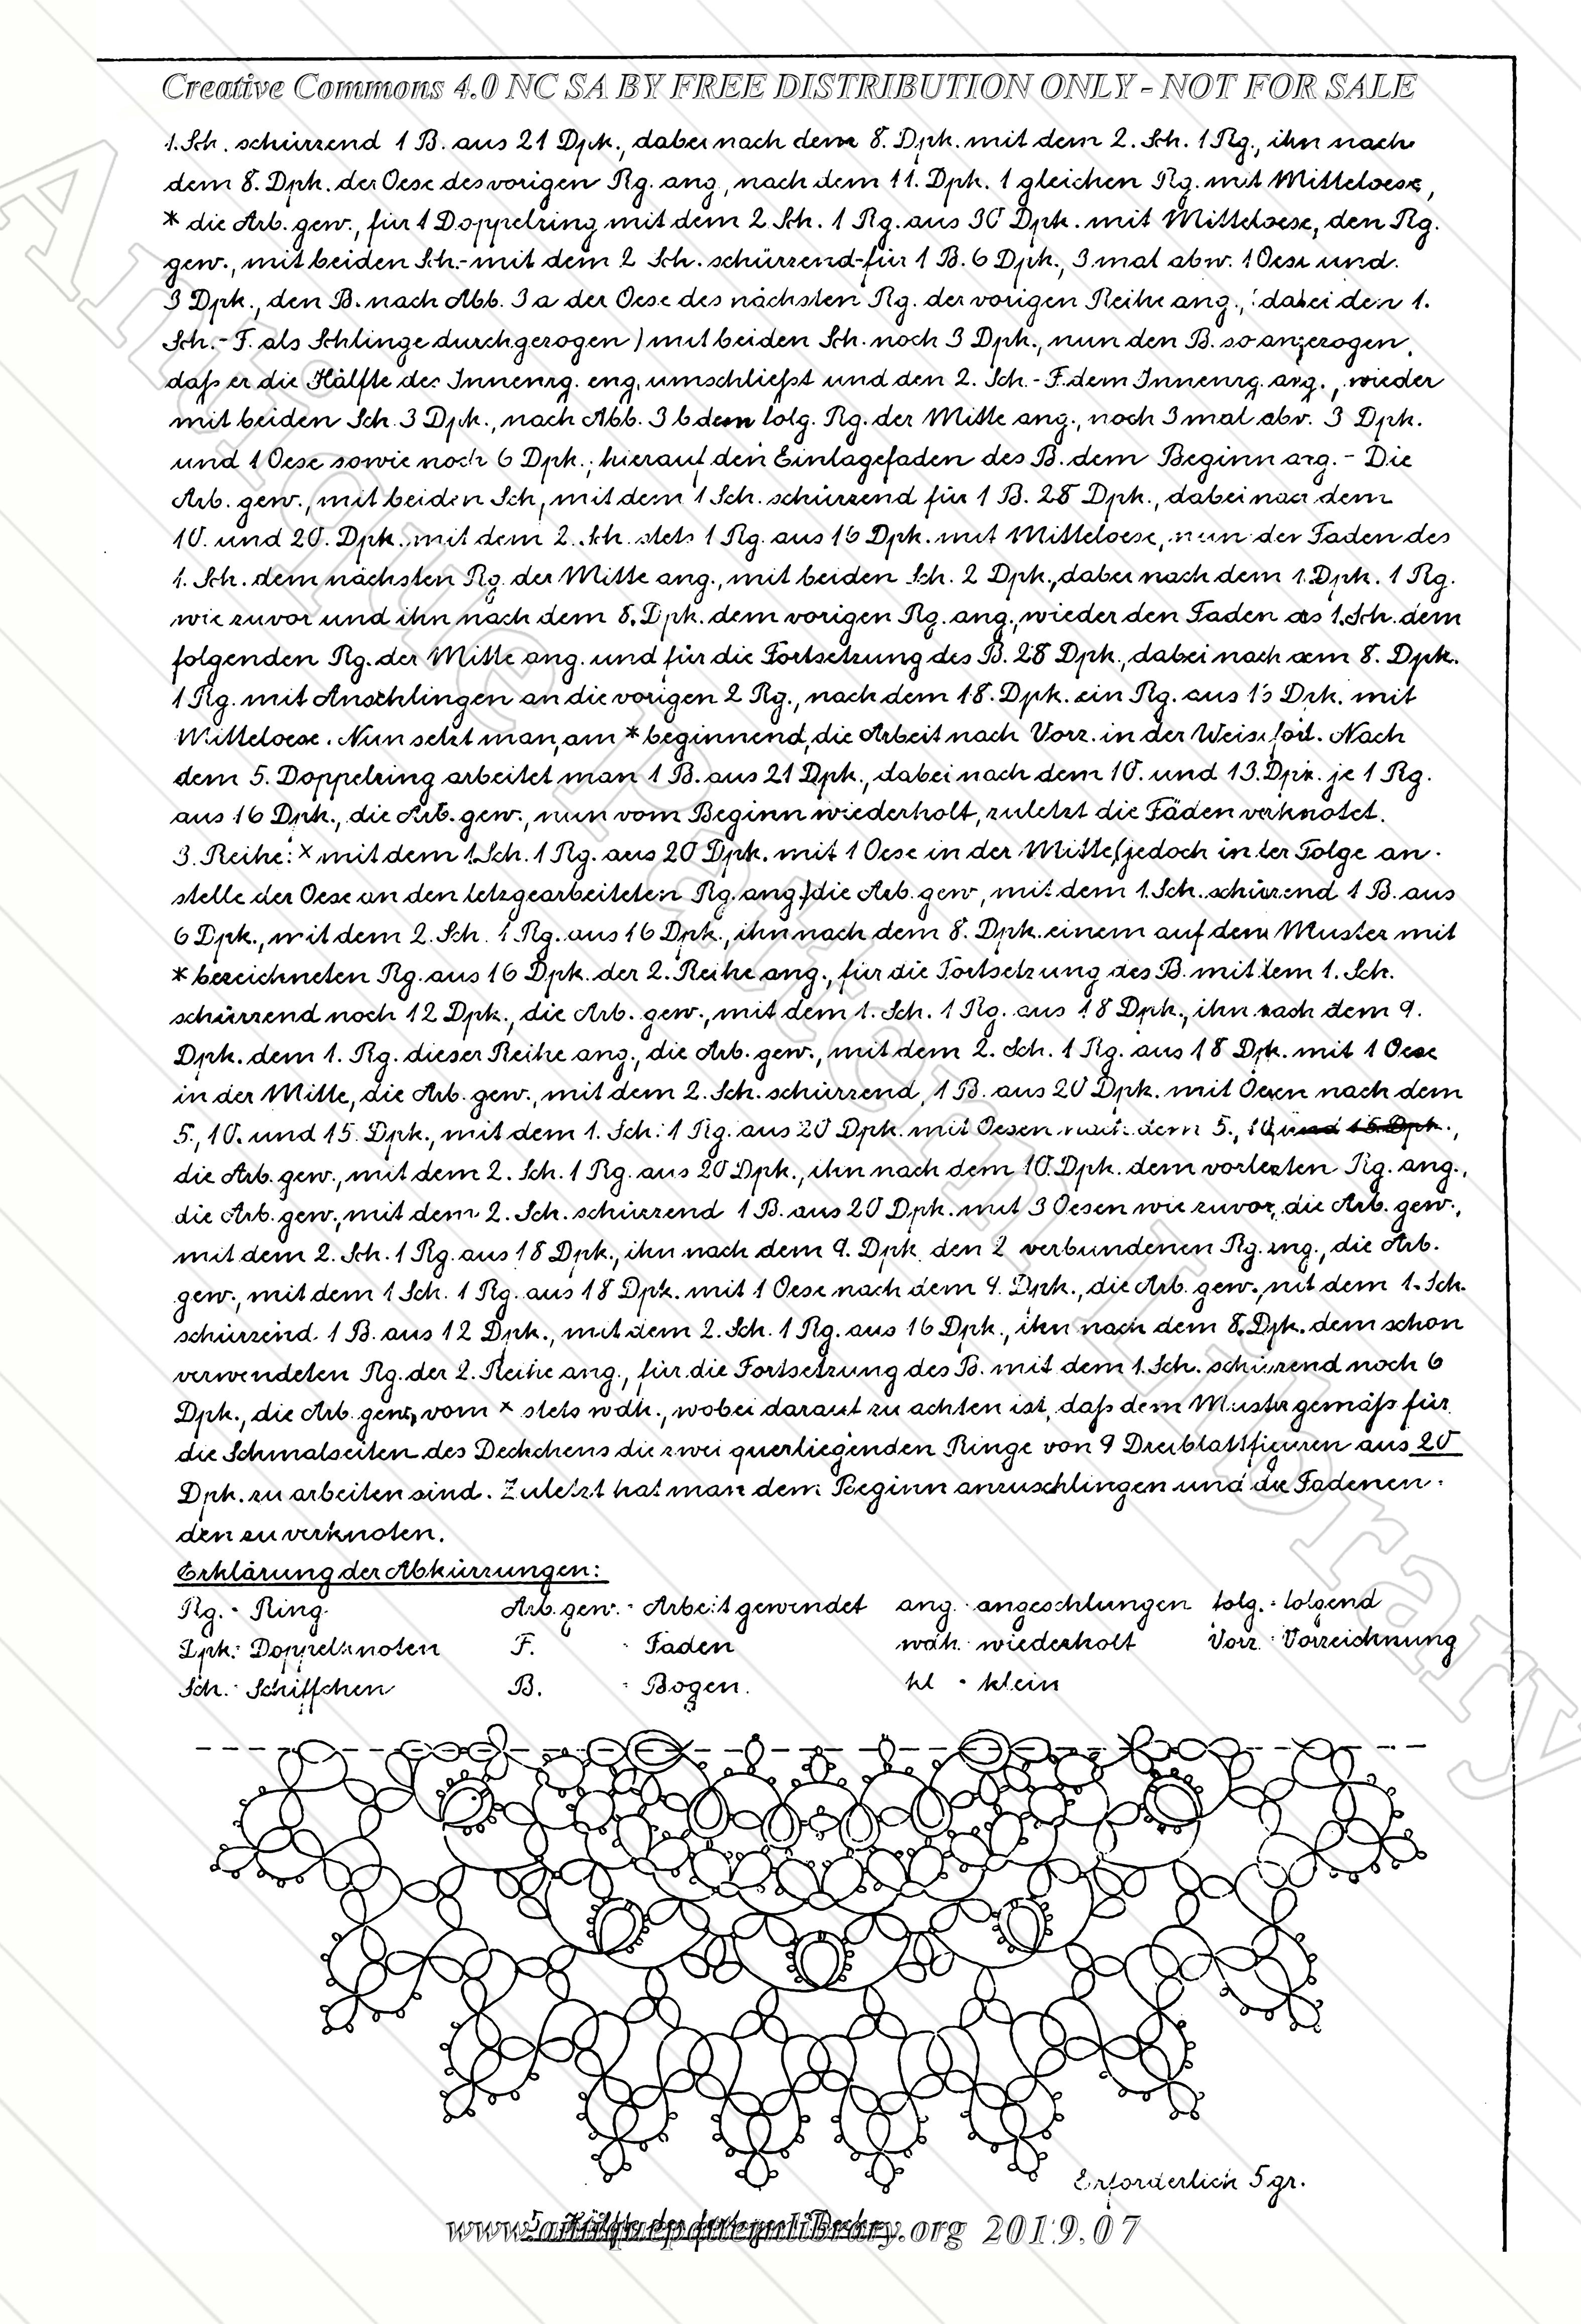 Creative Commons 4.0 NC SA BY FREE DISTRIBUTION ONLY - NOT FOR SALE
1. Sch. schürzend 1 B. aus 21 Dpk., dabei nach dem 8. Dpk. mit dem 2. Sch. 1 Rg., ihn nach
dem 8. Dpk. der Oese des vorigen Rg. ang., nach dem 11. Dpk. 1 gleichen Rg. mit Mitteloese,
* die Arb. gew., für 1 Doppelring mit dem 2 Sch. 1 Rg. aus 30 Dpk. mit Mitteloese, den Rg.
gew., mit beiden Sch.-mit dem 2 Sch. schürzend-für 1 B. 6 Dpk., 3 mal abw. 1 Oese und
3 Dpk., den B. nach Abb. 3 a der Oese des nächsten Rg. der vorigen Reihe ang., (dabei den 1.
Sch.-F. als Schlinge durchgezogen) mit beiden Sch. noch 3 Dpk., nun den B. so angezogen,
daß er die Hälfte des Innenrg. eng. umschließt und den 2. Sch.-F. dem Innenrg. ang., wieder
mit beiden Sch. 3 Dpk., nach Abb. 3 b dem folg. Rg. der Mitte ang., noch 3 mal abw. 3 Dpk.
und 1 Oese sowie noch 6 Dpk.; hierauf den Einlagefaden des B. dem Beginn ang. - Die
Arb. gew., mit beiden Sch, mit dem 1 Sch. schürzend für 1 B. 28 Dpk., dabei nach dem
10. und 20. Dpk. mit dem 2. Sch. stets 1 Rg. aus 16 Dpk. mit Mitteloese, nun der Faden des
1. Sch. dem nächsten Rg. der Mitte ang., mit beiden Sch. 2 Dpk., dabei nach dem 1. Dpk. 1 Rg.
wie zuvor und ihn nach dem 8. Dpk. dem vorigen Rg. ang., wieder den Faden des 1. Sch. dem
folgenden Rg. der Mitte ang. und für die Fortsetzung des B. 28 Dpk., dabei nach dem 8. Dpk.
1 Rg. mit Anschlingen an die vorigen 2 Rg., nach dem 18. Dpk. ein Rg. aus Dpk. mit
Mitteloese. Nun setzt man, am * beginnend, die Arbeit nach Vorz. in der Weise fort. Nach
dem 5. Doppelring arbeitet man 1 B. aus 21 Dpk., dabei nach dem 10. und 13. Dpk. je 1 Rg.
aus 16 Dpk., die Arb. gew., nun vom Beginn wiederholt, zuletzt die Fäden verknotet.
3. Reihe: x mit dem 1. Sch. 1 Rg. aus 20 Dpk. mit 1 Oese in der Mitte (jedoch in der Folge an-
stelle der Oese an den letzgearbeiteten Rg. ang.) die Arb. gew, mit dem 1. Sch. schürzend 1 B. aus
6 Dpk., mit dem 2. Sch. 1 Rg. aus 16 Dpk., ihn nach dem 8. Dpk. einem auf dem Muster mit
* bezeichneten Rg. aus 16 Dpk. der 2. Reihe ang., für die Fortsetzung des B. mit dem 1. Sch.
schürzend noch 12 Dpk., die Arb. gew., mit dem 1. Sch. 1 Rg. aus 18 Dpk., ihn nach dem 9.
Dpk. dem 1. Rg. dieser Reihe ang., die Arb. gew., mit dem 2. Sch. 1 Rg. aus 18 Dpk. mit 1 Oese
in der Mitte, die Arb. gew., mit dem 2. Sch. schürzend, 1 B. aus 20 Dpk. mit Oesen nach dem
5., 10. und 15. Dpk., mit dem 1. Sch. 1 Rg. aus 20 Dpk. mit Oesen nach dem 5., 10 und 15. Dpk.,
die Arb. gew., mit dem 2. Sch. 1 Rg. aus 20 Dpk., ihn nach dem 10. Dpk. dem vorletzten Rg. ang.,
die Arb. gew., mit dem 2. Sch. schürzend 1 B. aus 20 Dpk. mit 3 Oesen wie zuvor, die Arb. gew.,
mit dem 2. Sch. 1 Rg. aus 18 Dpk., ihn nach dem 9. Dpk. den 2 verbundenen Rg. ang., die Arb.
gew., mit dem 1 Sch. 1 Rg. aus 18 Dpk. mit 1 Oese nach dem 9. Dpk., die Arb. gew., mit dem 1. Sch.
schürzend 1 B. aus 12 Dpk., mit dem 2. Sch. 1 Rg. aus 16 Dpk., ihn nach dem 8. Dpk. dem schon
verwendeten Rg. der 2. Reihe ang., für die Fortsetzung des B. mit dem 1. Sch. schürzend noch 6
Dpk., die Arb. gew., vom x stets wdh., wobei darauf zu achten ist, daß dem Muster gemäß für
die Schmalseiten des Deckchens die zwei querliegenden Ringe von 9 Dreiblattfiguren aus 20
Dpk. zu arbeiten sind. Zuletzt hat man dem Beginn anzuschlingen und die Fadenen-
den zu verknoten.
Erklärung der Abkürzungen:
Rg. - Ring Arb. gew. - Arbeit gewendet ang. - angeschlungen folg. - folgend
Dpk. - Doppelknoten F. - Faden wdh. - wiederholt Vorz. - Vorzeichnung
Sch. - Schiffchen B. - Bogen. kl - klein
Erforderlich 5 gr.
www.antiquepatternlibrary.org 2019.07
Antique Pattern Library